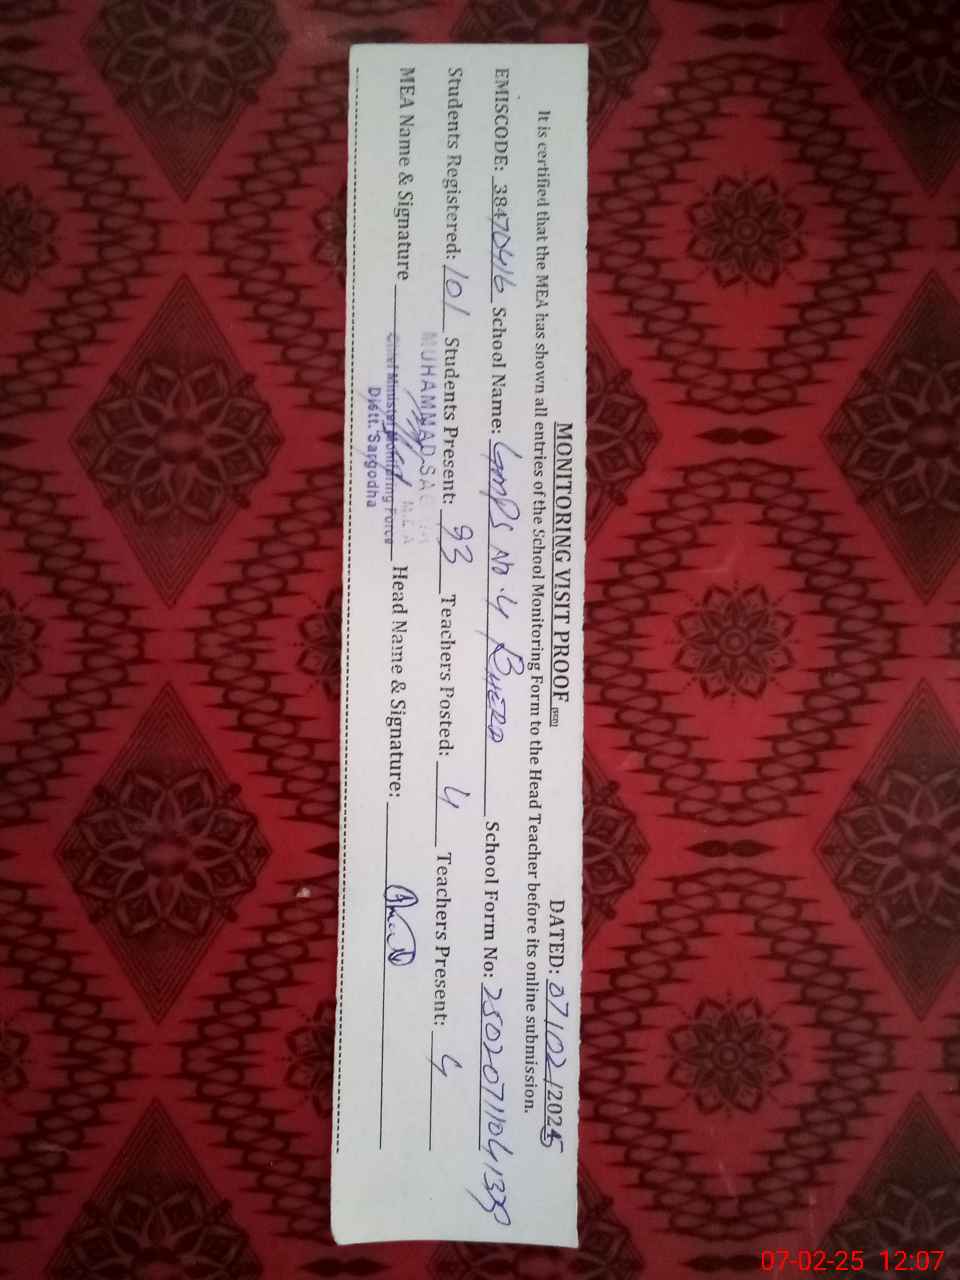 MONITORING VISIT PROOF (SED) DATED: 07/02/2025
It is certified that the MEA has shown all entries of the School Monitoring Form to the Head Teacher before its online submission.
EMISCODE: 38470416 School Name: GMPS No.4 BHERA School Form No:
Students Registered: 101 Students Present: 93 Teachers Posted: 4 Teachers Present: 4
MUHAMMAD SALIM
M.E.A
MEA Name & Signature Head Name & Signature:
Chief Minister Monitoring Force
Distt. Sargodha
07-02-25 12:07